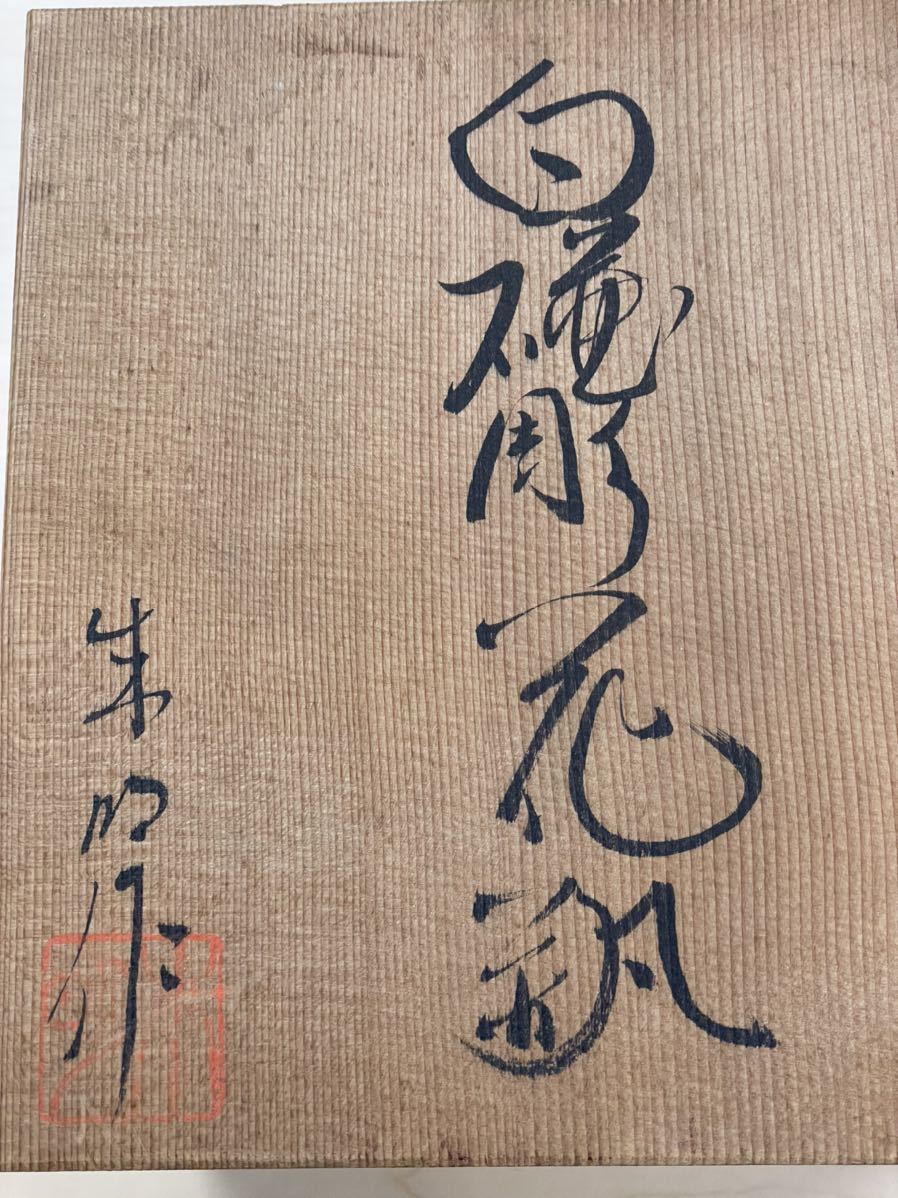 白磁彫花瓶
朱明作